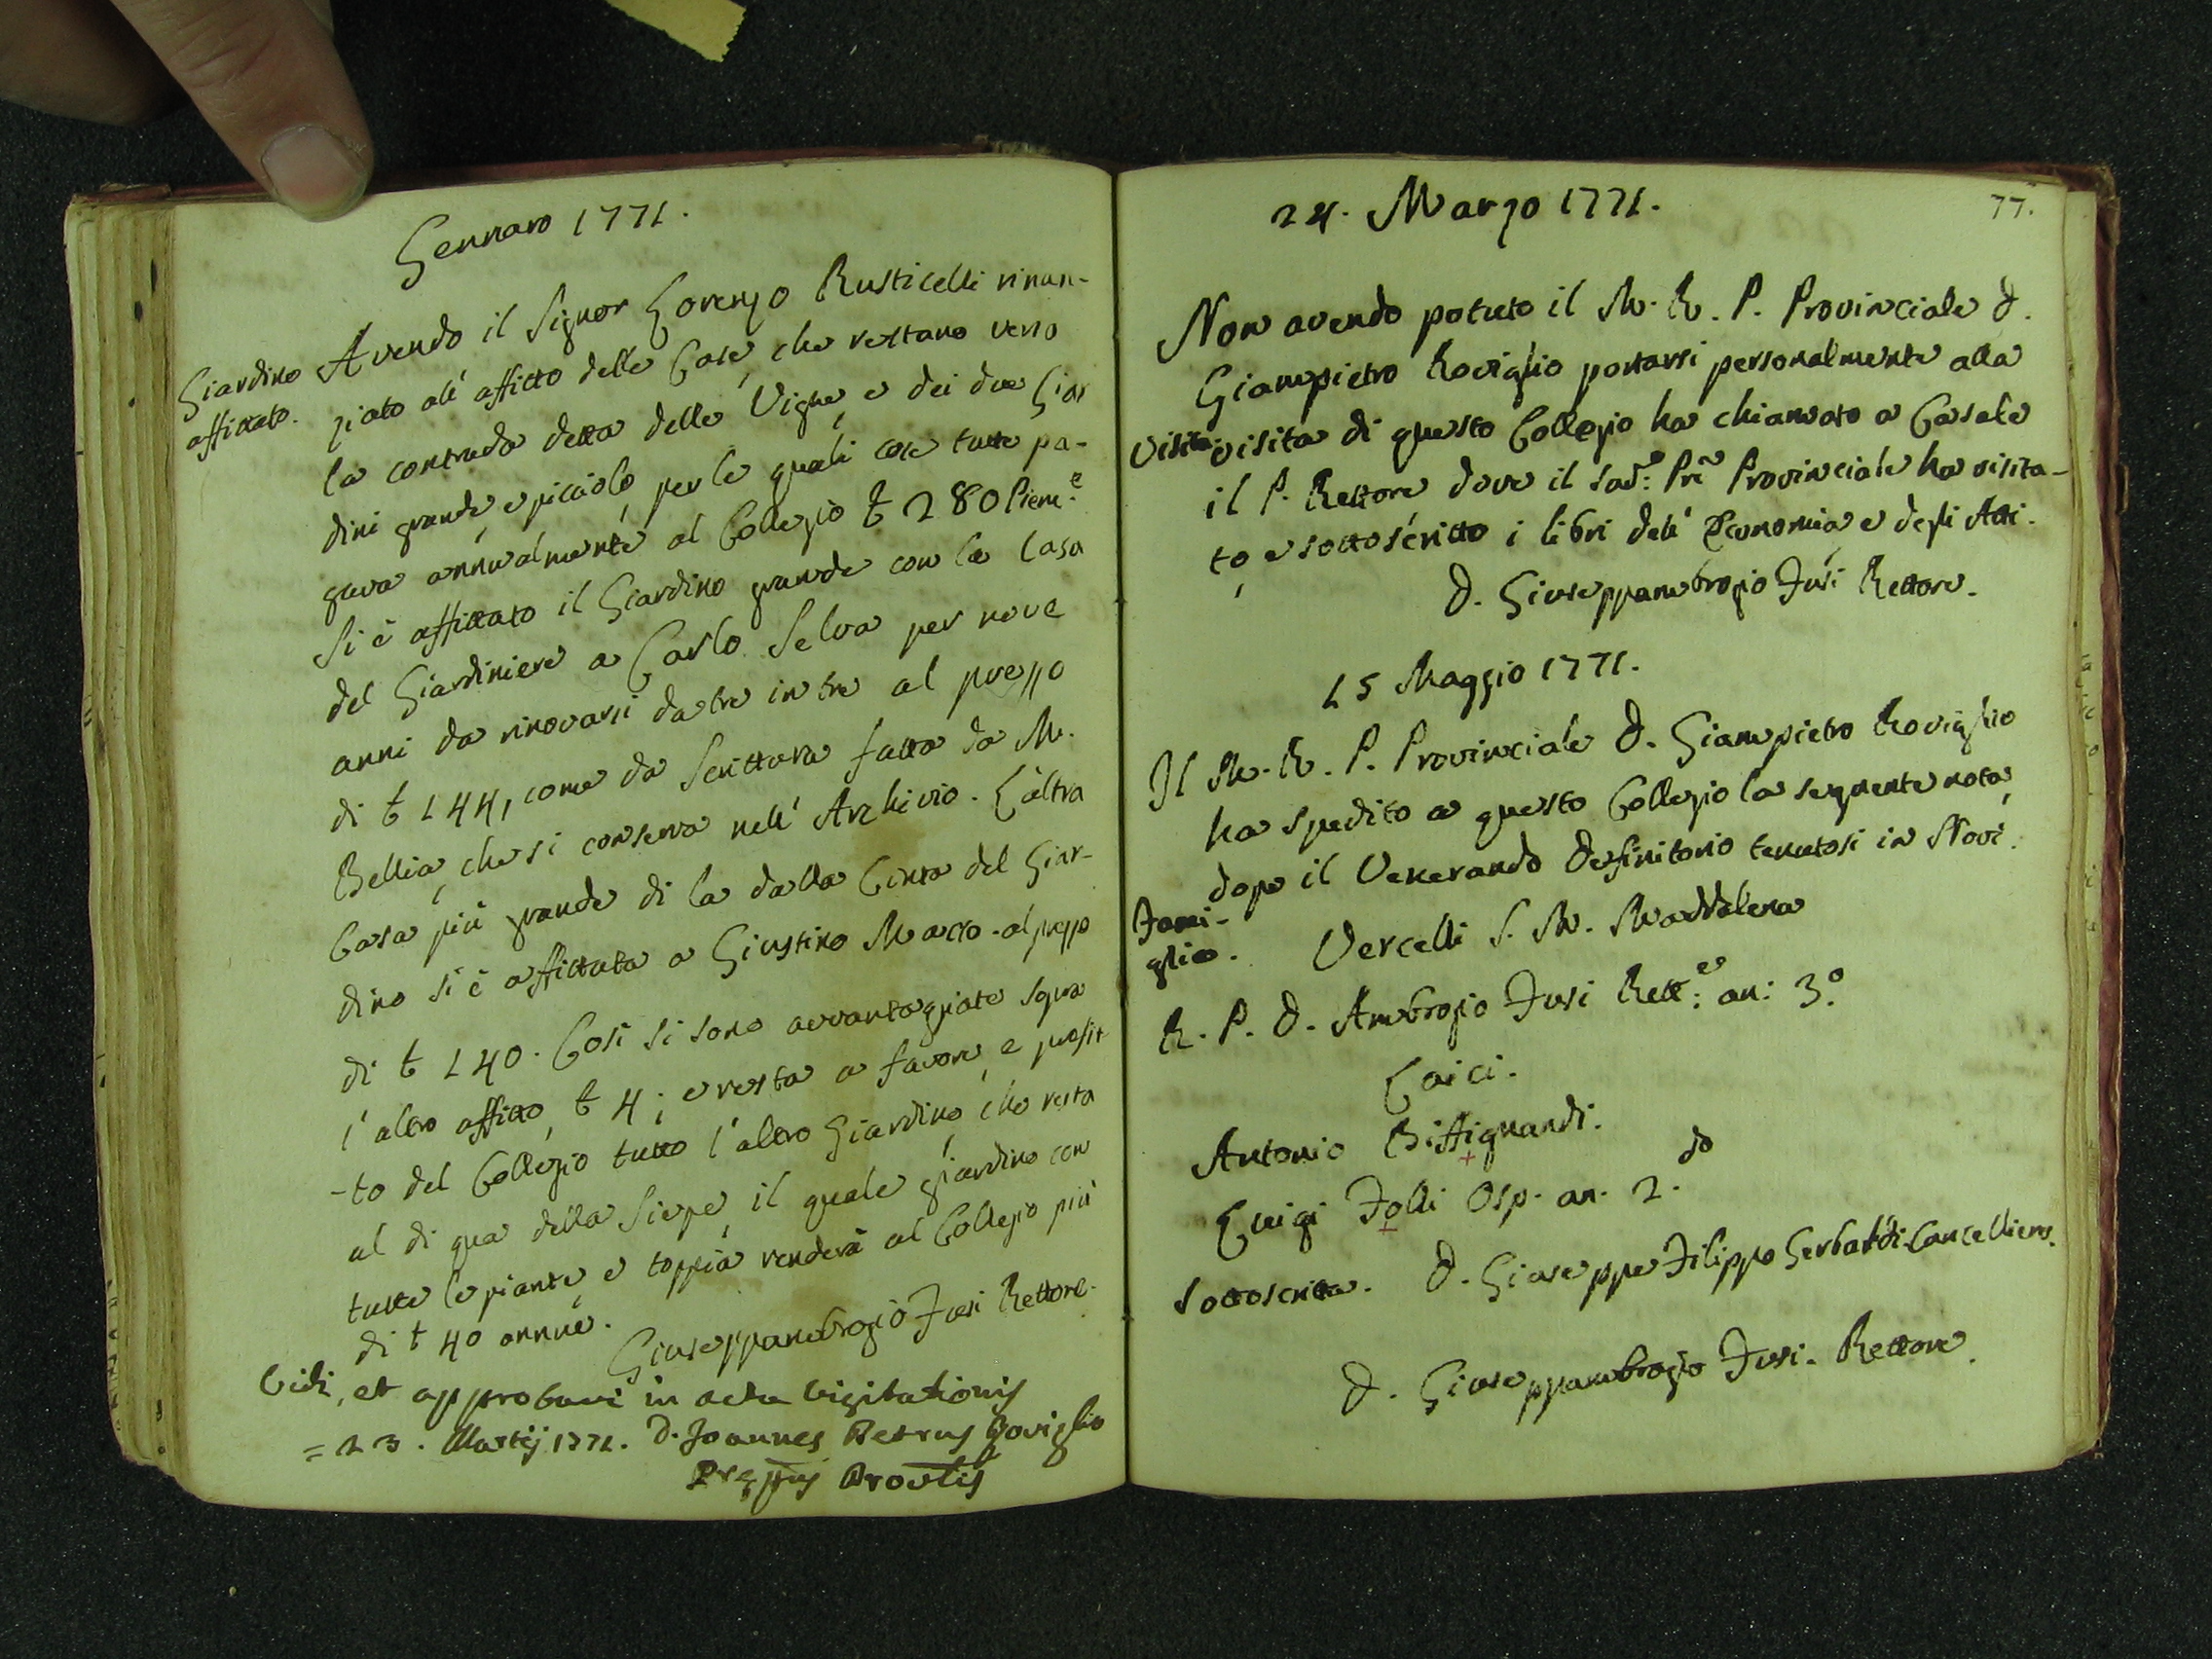 Gennaro 1771.
Giardino
affittato.
Avendo il Signor Lorenzo Rusticelli rinun-
ziato all' affitto delle Case, che restano verso
la contrada detta delle Vigne, e dei due Giar
dini grande, e picciolo, per le quali cose tutte pa-
gava annualmente al Collegio ₺ 280 Piem.e
Si è affittato il Giardino grande con la Casa
del Giardiniere a Carlo Selva per nove
anni da rinovarsi da tre in tre al prezzo
di ₺ 144, come da Scrittura fatta da M.
Bellia, che si conserva nell' Archivio. L'altra
Casa più grande di la dalla Cinta del Giar-
dino si è affittata a Giustino Macco al prezzo
di ₺ 140. Così si sono avvantaggiate sopra
l' altro affitto ₺ 4; e resta a favore, e profit
-to del Collegio tutto l' altro Giardino, che resta
al di qua della Siepe, il quale giardino con
tutte le piante, e toppia renderà al Collegio più
di ₺ 40 annue.
Giuseppambrogio Fusi Rettore.
Vidi, et approbavi in actu Visitationis
= 23. Martij 1771. D. Joannes Petrus Roviglio
Præptus Provlis
77.
24. Marzo 1771.
Non avendo potuto il M. R. P. Provinciale D.
Giampietro Roviglio portarsi personalmente alla
Visita
visita di questo Collegio ha chiamato a Casale
il P. Rettore dove il sud.o Pre Provinciale ha visita-
to, e sottoscritto i libri dell' Economia, e degli Atti.
D. Giuseppambrogio Fusi Rettore.
15 Maggio 1771.
Il M. R. P. Provinciale D. Giampietro Roviglio
ha spedito a questo Collegio la seguente nota,
dopo il Venerando Definitorio tenutosi in Novi.
Fami-
glia.
Vercelli S. M. Maddalena
R. P. D. Ambrogio Fusi Rett.e an: 3.o
Laici.
Antonio Biffignandi.
Luigi Folli Osp. an. 2.do
Sottoscritta. D. Giuseppe Filippo Gerbaldi Cancelliere.
D. Giuseppambrogio Fusi. Rettore.